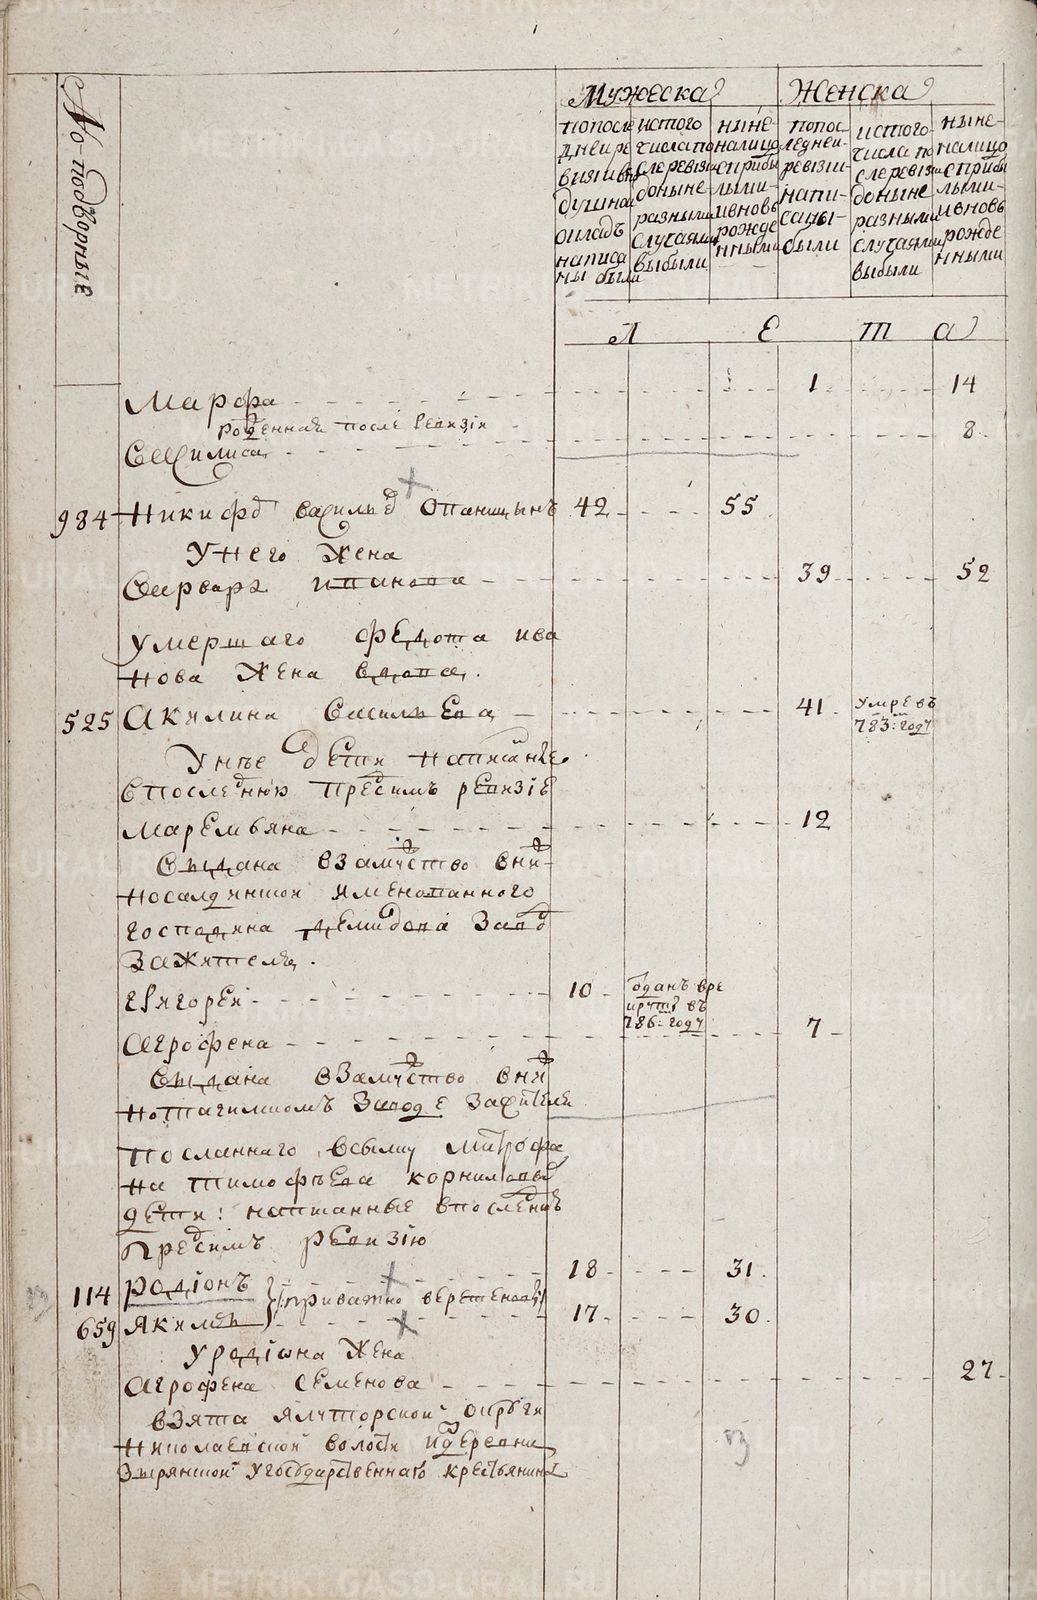 Мужеска Женска
№ подворныя
по после дней ревизии в душной окладъ написаны были
ис того числа после ревизии доныне разными случаями выбыли
ныне налицо с прибылыми и вновь рожденными
по последней ревизии написаны были
ис того числа после ревизии доныне разными случаями выбыли
ныне налицо с прибылыми и вновь рожденными
Л Е т а
Марфа 1 14
рожденная после ревизiи
Василиса 8
984 Никифоръ васильевъ Опаницынъ 42 55
У него Жена
Варвара иванова 39 52
умершаго федота ива
нова Жена вдова
525 Акилина васильева 41 умре въ
783: году
У нее дети написанные
в последнюю пред симъ ревизiе
Маремьяна 12
выдана в замужство в ни
господина демидова завод
за жителя
григореи 10 отданъ в ре
круты въ
786: году
Агрофена 7
выдана в замужство в ни
нотагилскомъ заводе за жителя
Посланнаго в сылку митрофа
на тимофѣева корнилова
дети: написанные в последнюю
пред симъ ревизiю
114 родiонъ 18 31
приватно
659 якимъ 17 30
У родiона Жена
Агрофена семенова 27
взята ялуторскои округи
николаевскои волости из деревни
зырянскои у государственнаго крестьянина
METRIKI.GASO-URAL.RU